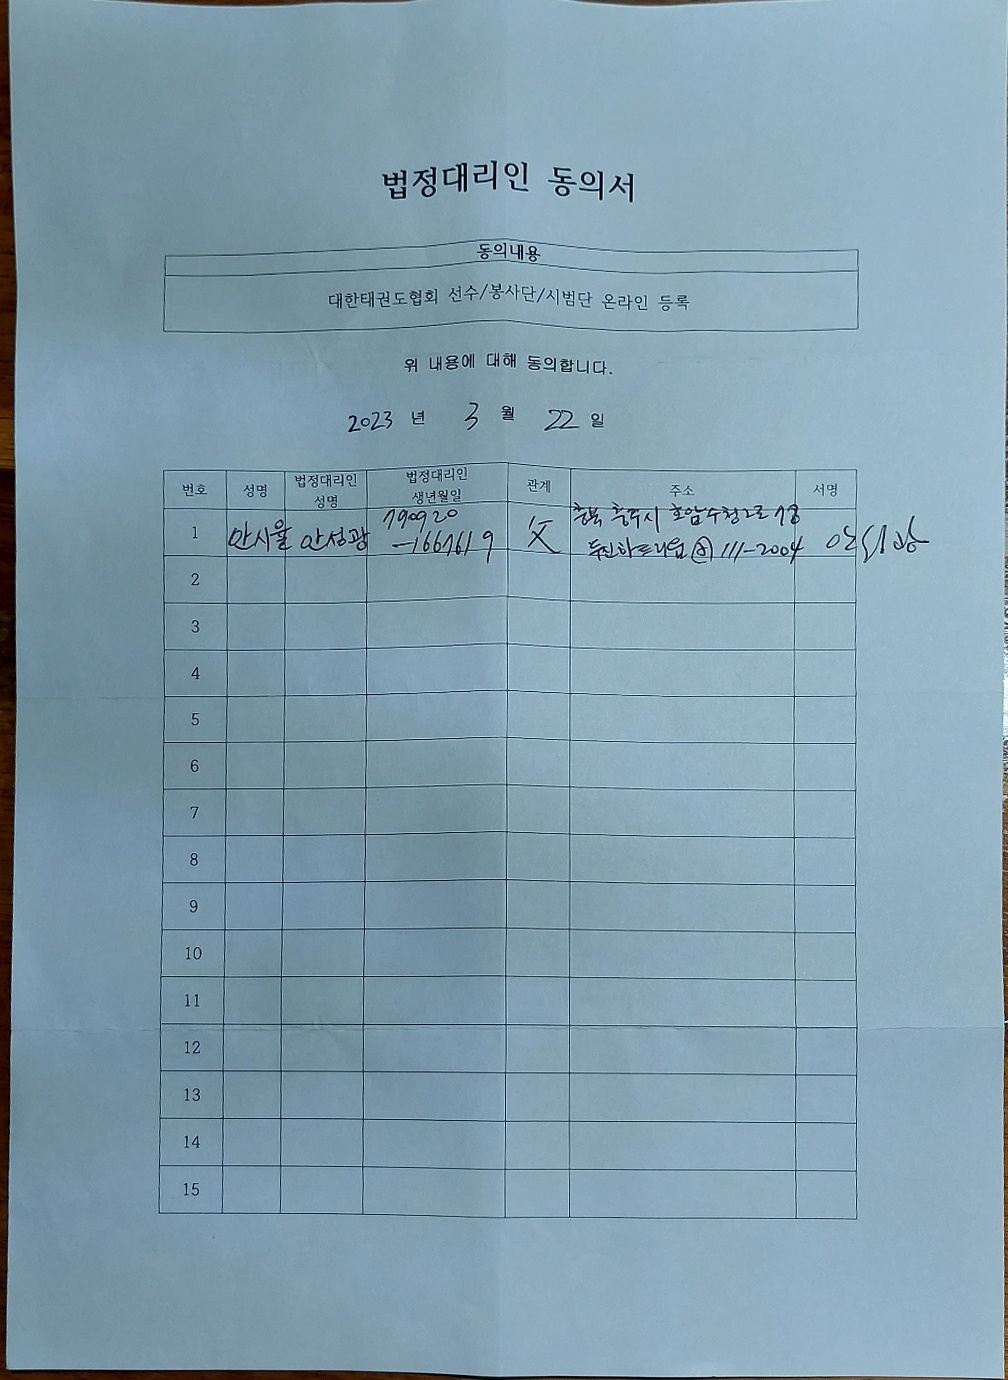 법정대리인 동의서
동의내용
대한태권도협회 선수/봉사단/시범단 온라인 등록
위 내용에 대해 동의합니다.
2023 년 3 월 22 일
번호 성명 법정대리인 성명 법정대리인 생년월일 관계 주소 서명
1 안시율 안성광 790920 父 충북 충주시 호암수청2로 두진하트리움 111-2004
2
3
4
5
6
7
8
9
10
11
12
13
14
15